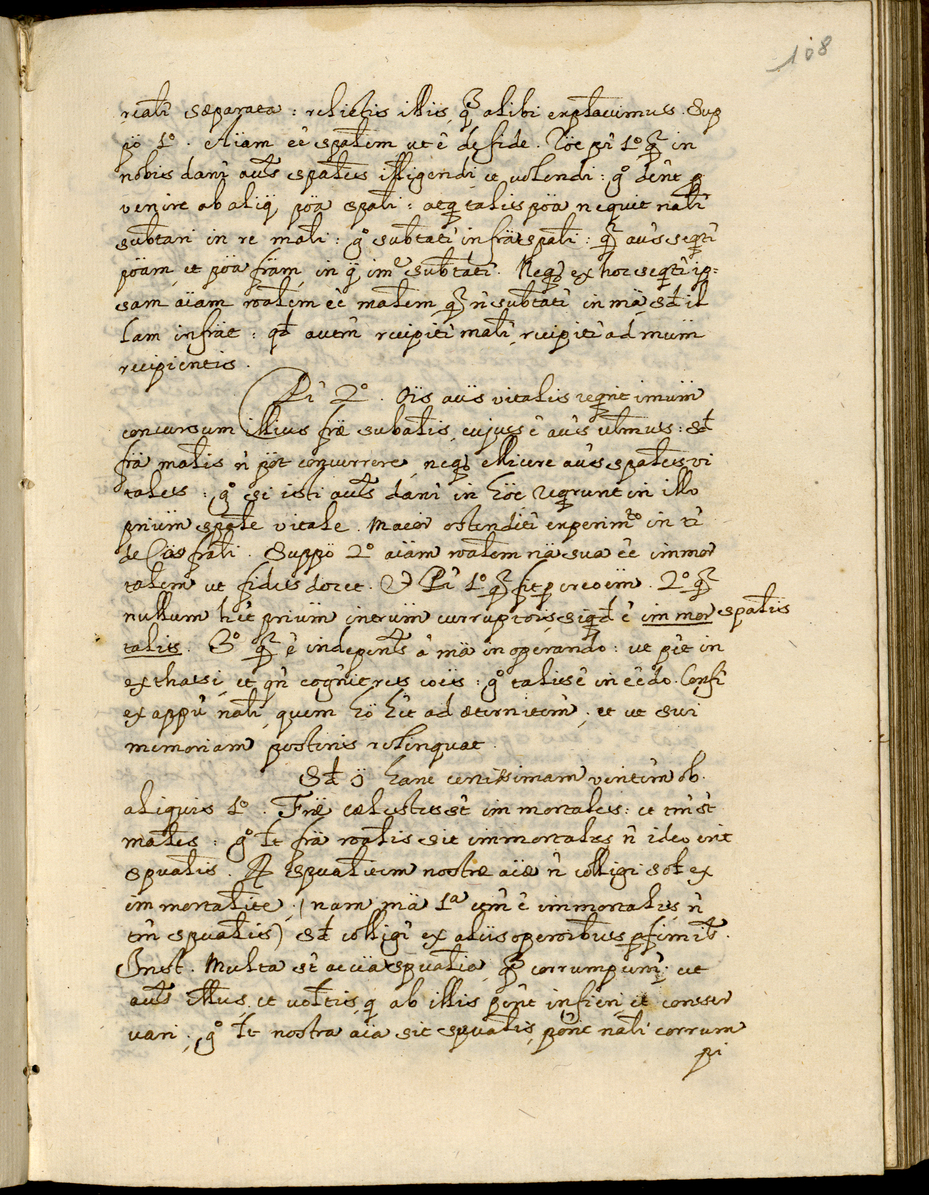 108
realî sæparata : relictis illis, q̃ alibi explacuimus. Sup
pö 1º. Aïam eê spalem ut ê de fide. Röe pî 1º q̃ in
nobis danî auts spales illigendi, et volendi : gº dênt p
venire ab aliq̃ pöa spali : atq̃ talis pöa nequit nalî
subtari in re mali : gº subtatî in frä spali : q̃ aûs seqtî
pöam, et pöa främ, in q̃ imº subtatî. Neq̃ ex hoc seqtî ip=
sam aïam roalem eê malem, q̃ ñ subtatî in mä, sd il
lam infräe : qd autm̂ recipitî malî, recipitî ad mum̈
recipientis.
Pî 2º. Oïs aûs vitalis reqrit imum̈
concursum illius fræ subalis, cujus ê aûs ultmus : sd
frä malis ñ pöt concurrere, neq̃ ellicere aûs spales vi
tales : gº si isti auts danî in höe reqrunt in illo
prium̈ spale vitale. Maeör ostenditî experimto in tî
de Cäs frali. Suppö 2º aïäm roalem nä sua eê immor
talem ut fides docet. Et Pî 1º q̃ fit p creoem̈. 2º q̃
nullum hêt prium̈ intrum̈ corruptois, siqd ê immor spalis
talis. 3º q̃ ê indepents â mä in operando : ut pêt in
exthasi, et qn̂ cognit res coës : gº talis ê in eêdo. Confî
ex appû nali, quem hö hêt ad æternitem̂, et ut sui
memoriam posteris relinquat.
Sd ö hanc certissimam veritem̂ ob.
aliquis 1º. Fræ cælestes st̂ immortales : et tm̂ st̂
males : gº lt frä roalis sit immortales ñ ideo erit
spualis. R spualitem nostræ aïæ ñ colligi sol ex
immortalite, (nam mä 1ª etm̂ ê immortalis, ñ
tm̂ spualis) sd colligî ex aliis operoibus p̃simibs.
Inst. Multa st̂ accia spualia, q̃ corrumpunî, ut
auts illus, et voltis, q̃ ab illis pênt infieri, et conser
vari ; gº lt nostra aïa sit spualis, pönt nalî corrum
pi